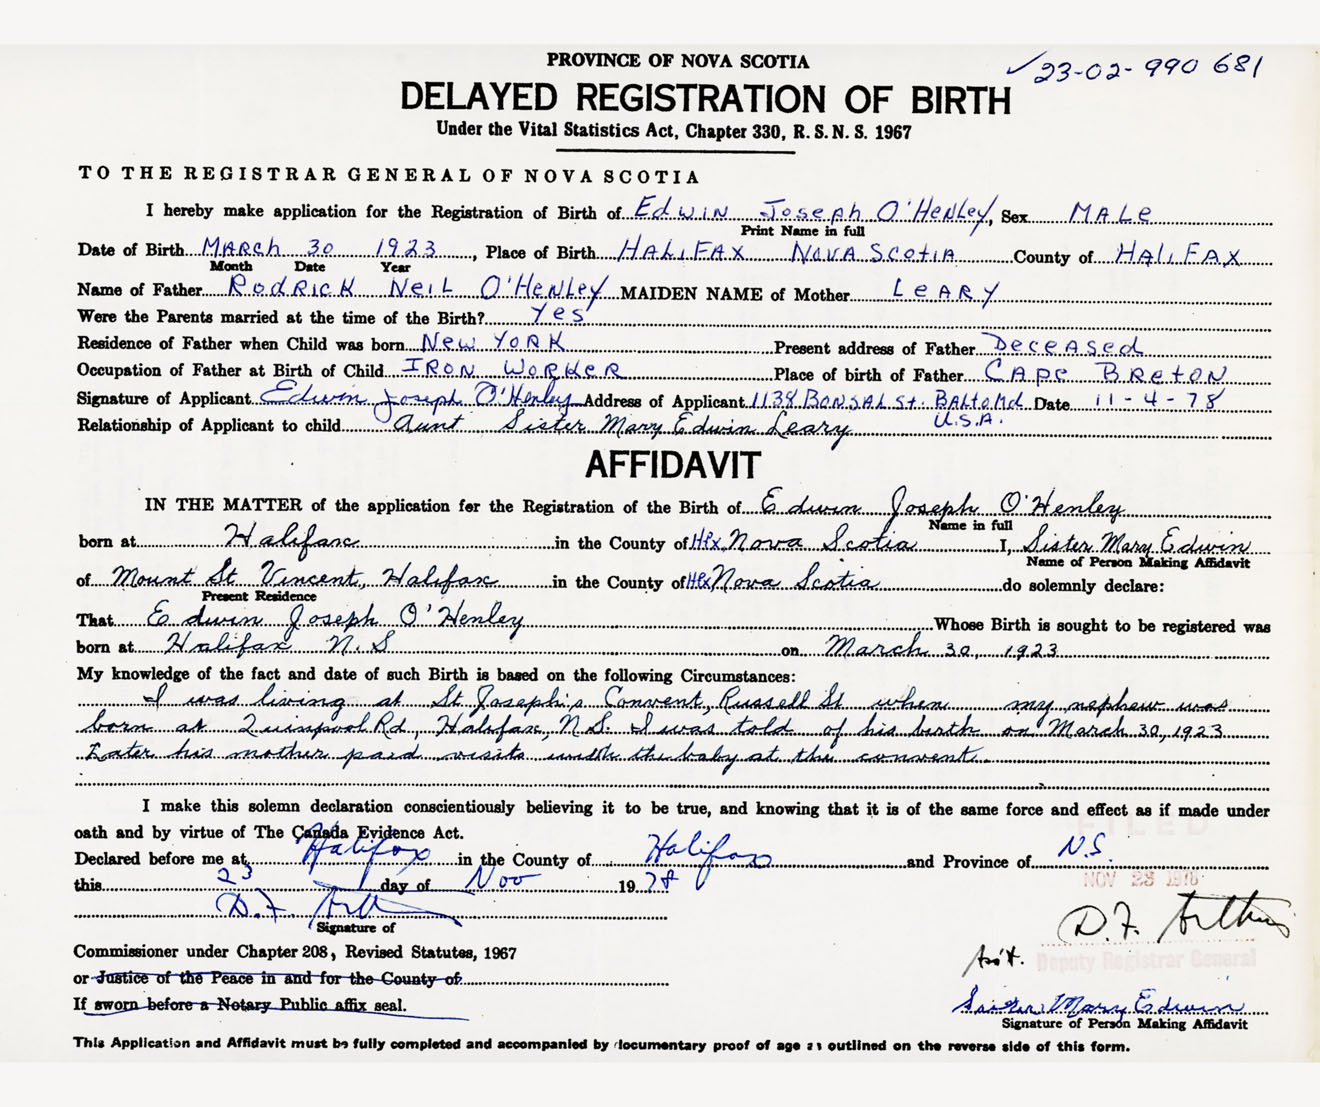 PROVINCE OF NOVA SCOTIA
✓23-02-990 681
DELAYED REGISTRATION OF BIRTH
Under the Vital Statistics Act, Chapter 330, R. S. N. S. 1967
TO THE REGISTRAR GENERAL OF NOVA SCOTIA
I hereby make application for the Registration of Birth of Edwin Joseph O'Henley, Sex MALE
Print Name in full
Date of Birth MARCH 30 1923, Place of Birth HALIFAX NOVA SCOTIA County of HALIFAX
Month Date Year
Name of Father RODRICK NEIL O'Henley MAIDEN NAME of Mother LEARY
Were the Parents married at the time of the Birth? Yes
Residence of Father when Child was born New YORK Present address of Father Deceased
Occupation of Father at Birth of Child IRON WORKER Place of birth of Father CAPE BRETON
Signature of Applicant Edwin Joseph O'Henley Address of Applicant 1138 BONSAL St. BALTO Md. Date 11-4-78
Relationship of Applicant to child Aunt Sister Mary Edwin Leary U.S.A.
AFFIDAVIT
IN THE MATTER of the application for the Registration of the Birth of Edwin Joseph O'Henley
Name in full
born at Halifax in the County of Hfx, Nova Scotia I, Sister Mary Edwin
Name of Person Making Affidavit
of Mount St Vincent, Halifax in the County of Hfx, Nova Scotia do solemnly declare:
Present Residence
That Edwin Joseph O'Henley Whose Birth is sought to be registered was
born at Halifax N.S on March 30, 1923
My knowledge of the fact and date of such Birth is based on the following Circumstances:
I was living at St Joseph's Convent, Russell St when my nephew was
born at Quinpool Rd, Halifax, N.S. I was told of his birth on March 30, 1923
Later his mother paid visits with the baby at the convent.
I make this solemn declaration conscientiously believing it to be true, and knowing that it is of the same force and effect as if made under
oath and by virtue of The Canada Evidence Act.
FILED
Declared before me at Halifax in the County of Halifax and Province of N.S.
this 23 day of Nov 1978
NOV 23 1978
D.F. Arthur
Signature of
D.F. Arthur
Commissioner under Chapter 208, Revised Statutes, 1967
Ass't. Deputy Registrar General
or Justice of the Peace in and for the County of
If sworn before a Notary Public affix seal.
Sister Mary Edwin
Signature of Person Making Affidavit
This Application and Affidavit must be fully completed and accompanied by documentary proof of age as outlined on the reverse side of this form.